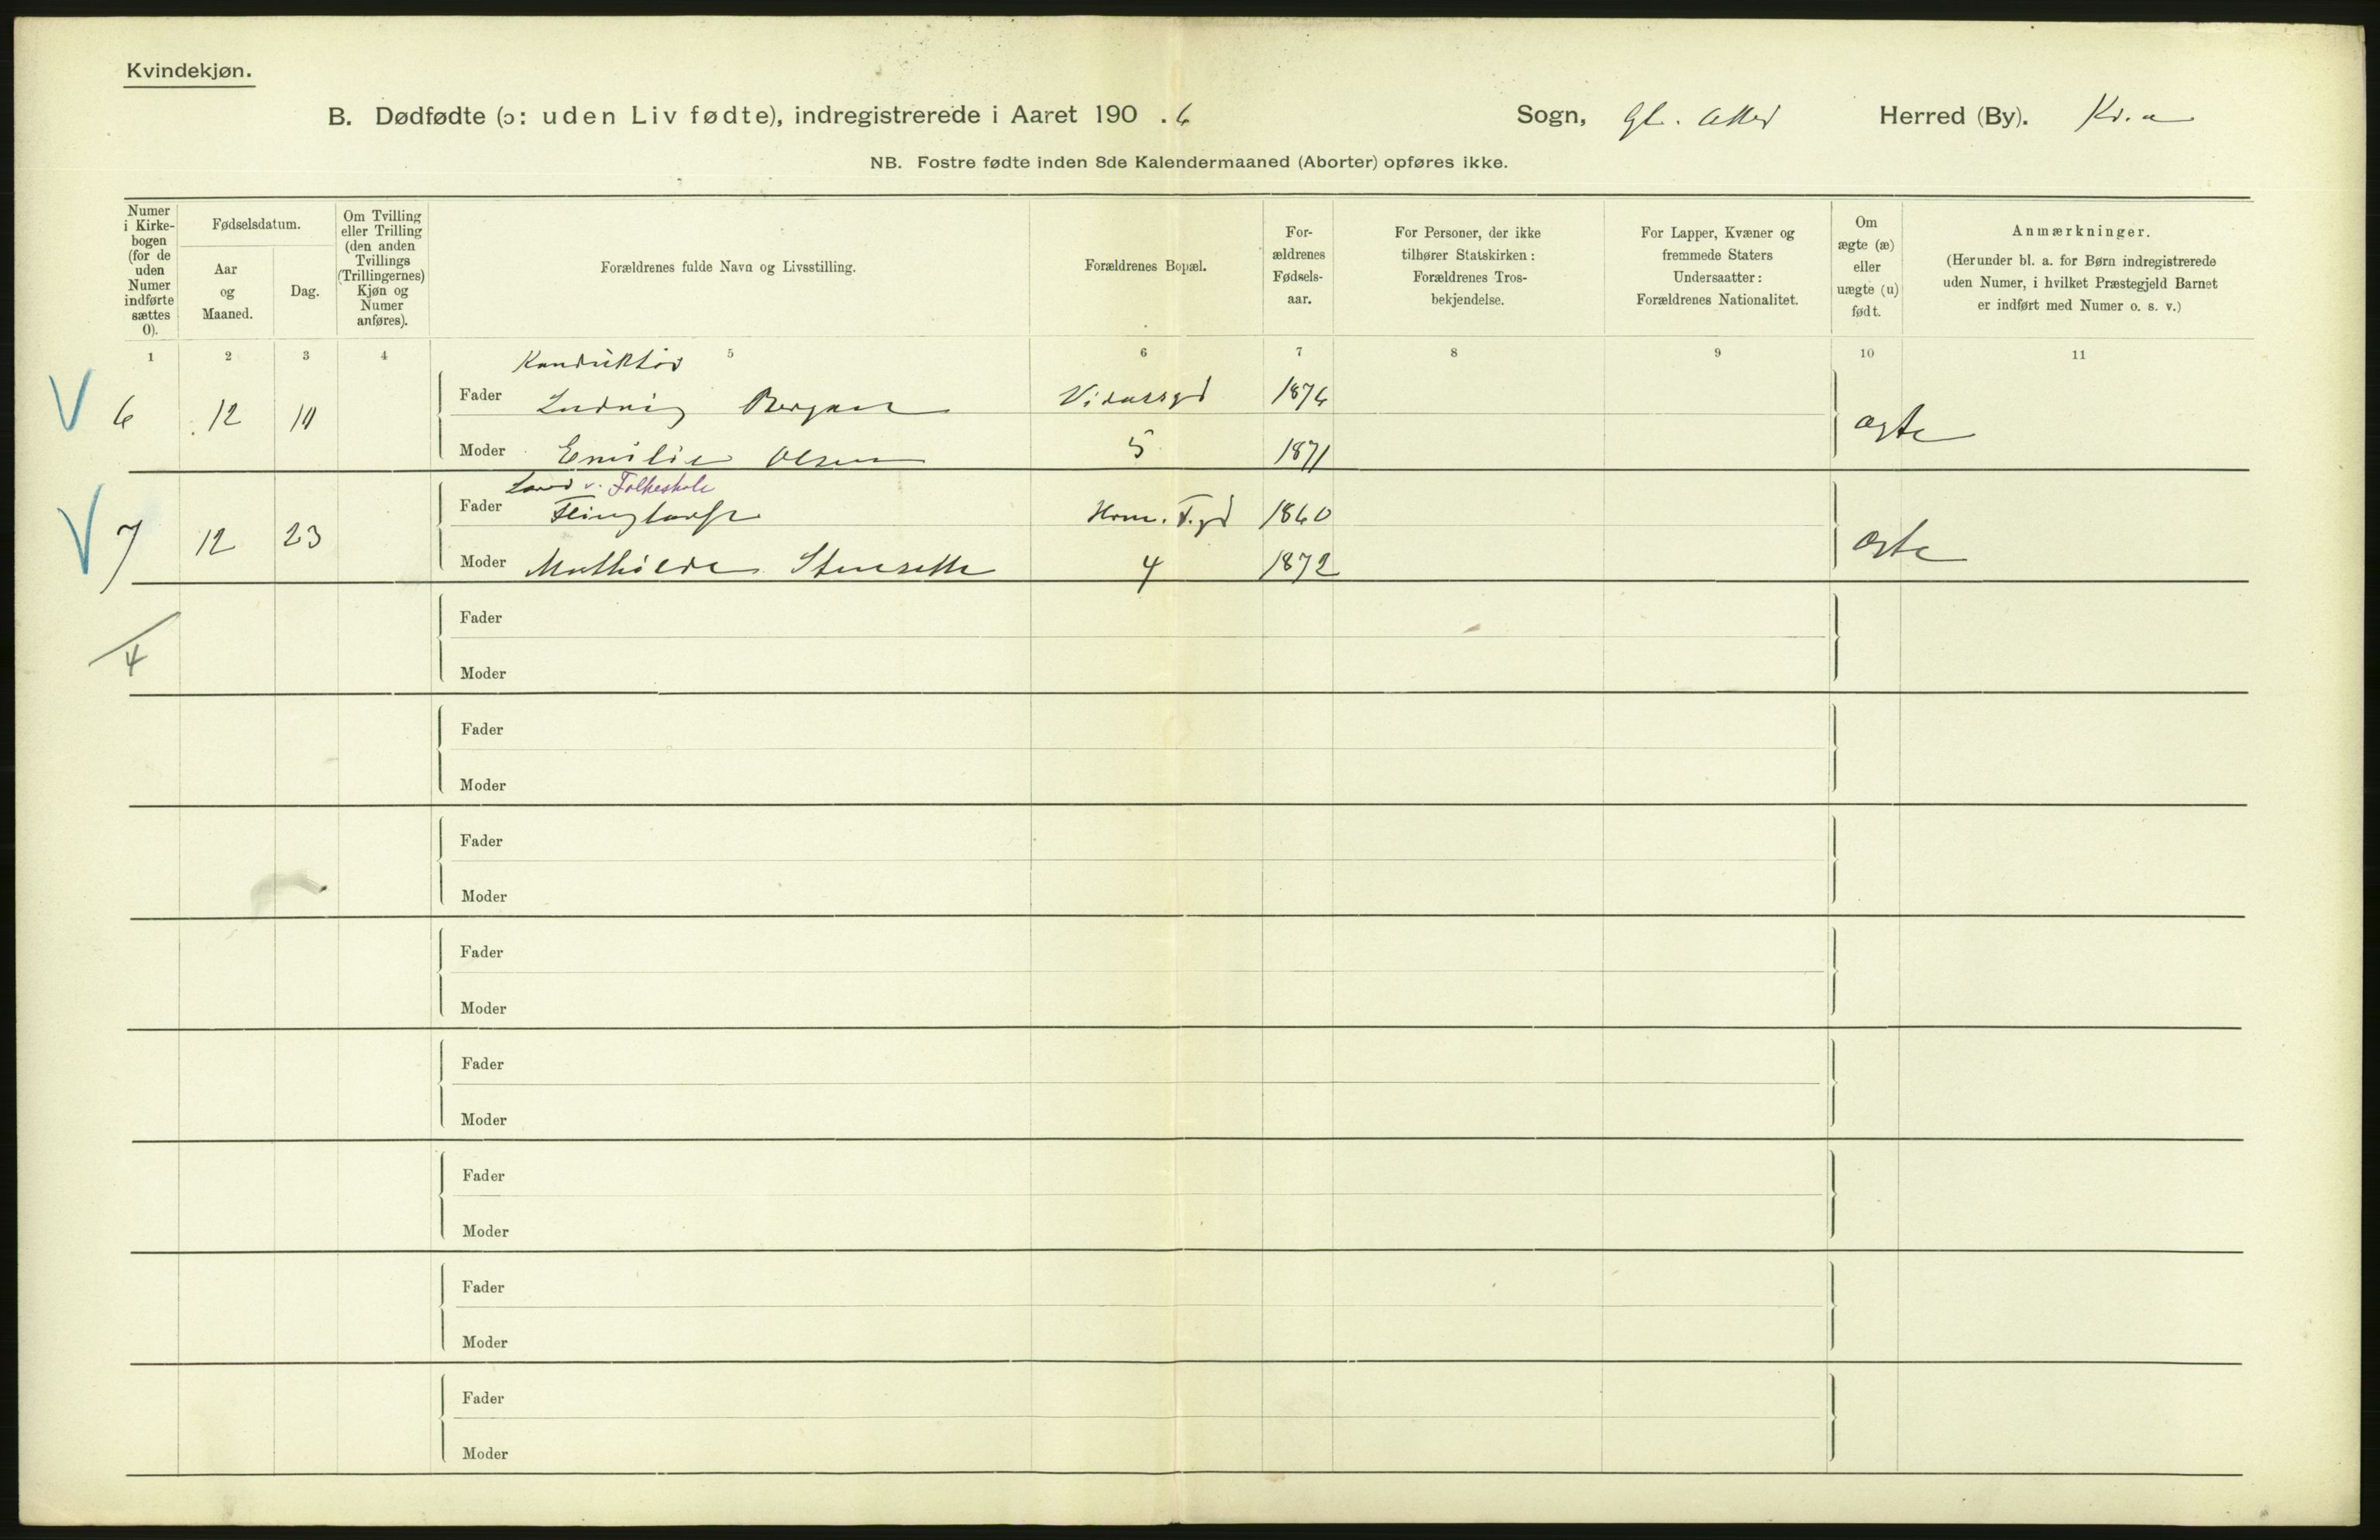 Kvindekjøn.
B. Dødfødte (ɔ: uden Liv fødte), indregistrerede i Aaret 190.6 Sogn, Gl. Aker Herred (By). Kr.a
NB. Fostre fødte inden 8de Kalendermaaned (Aborter) opføres ikke.
Numer
i Kirke-
bogen
(for de
uden
Numer
indførte
sættes
0).
Fødselsdatum.
Aar
og
Maaned.
Dag.
Om Tvilling
eller Trilling
(den anden
Tvillings
(Trillingernes)
Kjøn og
Numer
anføres).
Forældrenes fulde Navn og Livsstilling.
Forældrenes Bopæl.
For-
ældrenes
Fødsels-
aar.
For Personer, der ikke
tilhører Statskirken:
Forældrenes Tros-
bekjendelse.
For Lapper, Kvæner og
fremmede Staters
Undersaatter:
Forældrenes Nationalitet.
Om
ægte (æ)
eller
uægte (u)
født.
Anmærkninger.
(Herunder bl. a. for Børn indregistrerede
uden Numer, i hvilket Præstegjeld Barnet
er indført med Numer o. s. v.)
1 2 3 4 5 6 7 8 9 10 11
Konduktør
V 6 12 10 Fader Ludvig Bergan Vidarsgd 1876 ægte
Moder Emilie Olsen 5 1871
v. Folkeskole
V 7 12 23 Fader 1860 ægte
Moder Mathilde 4 1872
4
Fader
Moder
Fader
Moder
Fader
Moder
Fader
Moder
Fader
Moder
Fader
Moder
Fader
Moder
Fader
Moder